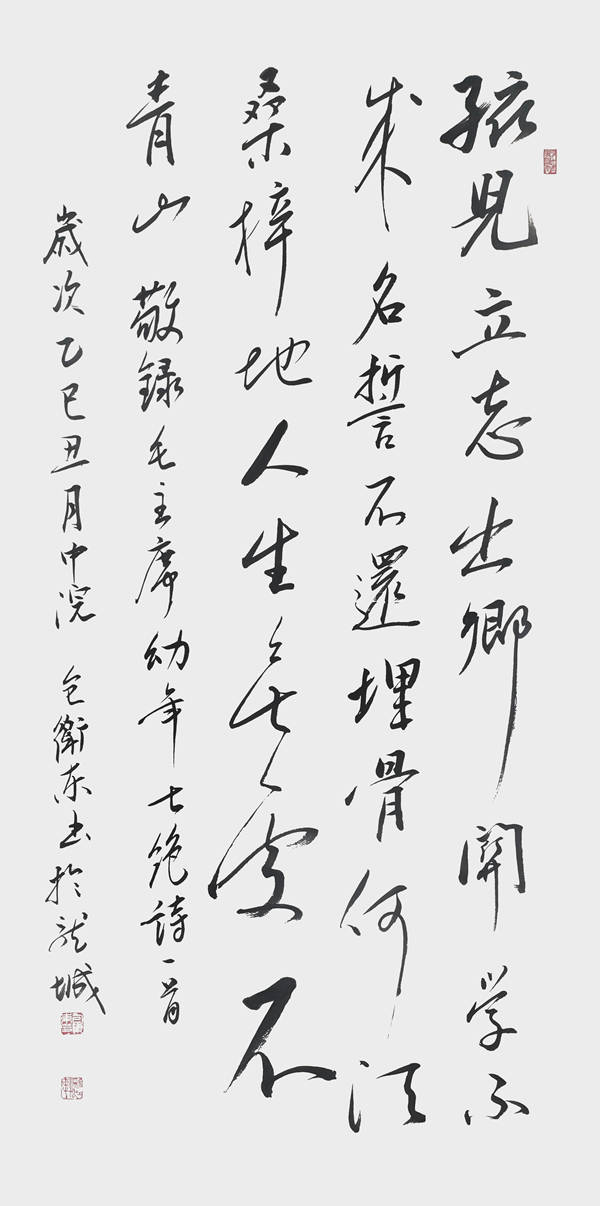 孩兒立志出鄉關学不
成名誓不還埋骨何須
桑梓地人生無處不
青山 敬録毛主席幼年七絶詩一首
歲次乙巳丑月中浣 包衛东书於龍城